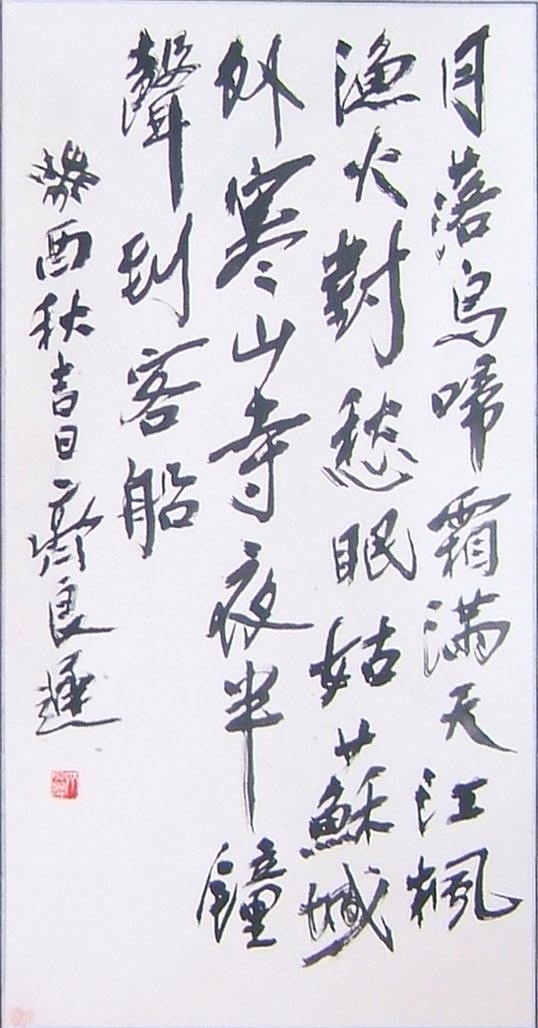 月落烏啼霜满天江楓
漁火對愁眠姑蘇城
外寒山寺夜半鐘
聲到客船
癸酉秋吉日齊良遲